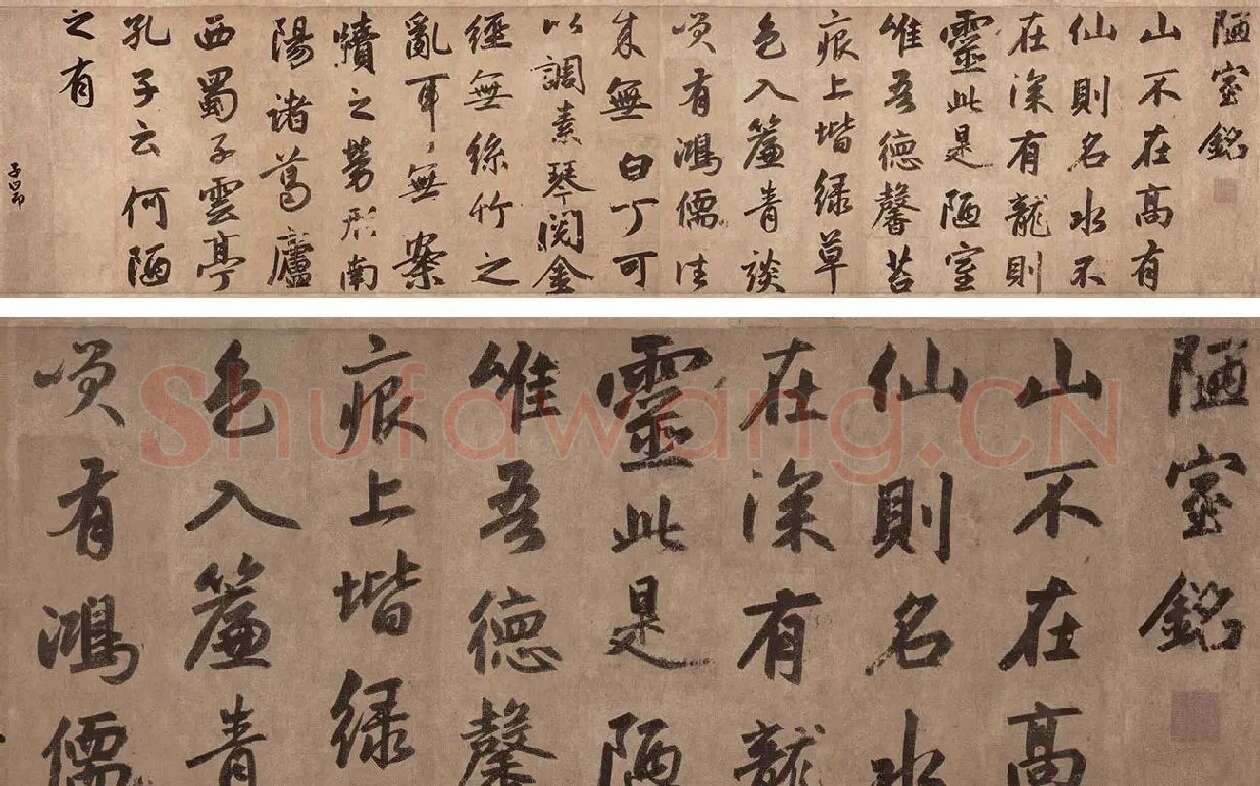 陋室銘
山不在高有
仙則名水不
在深有龍則
靈此是陋室
唯吾德馨苔
痕上堦緑草
色入簾青談
咲有鴻儒往
來無白丁可
以調素琴閱金
經無絲竹之
亂耳無案
牘之勞形南
陽諸葛廬
西蜀子雲亭
孔子云何陋
之有
子昂
陋室銘
山不在高
仙則名水
在深有龍
靈此是陋
唯吾德馨
痕上堦緑
色入簾青
咲有鴻儒
Shufawang.CN